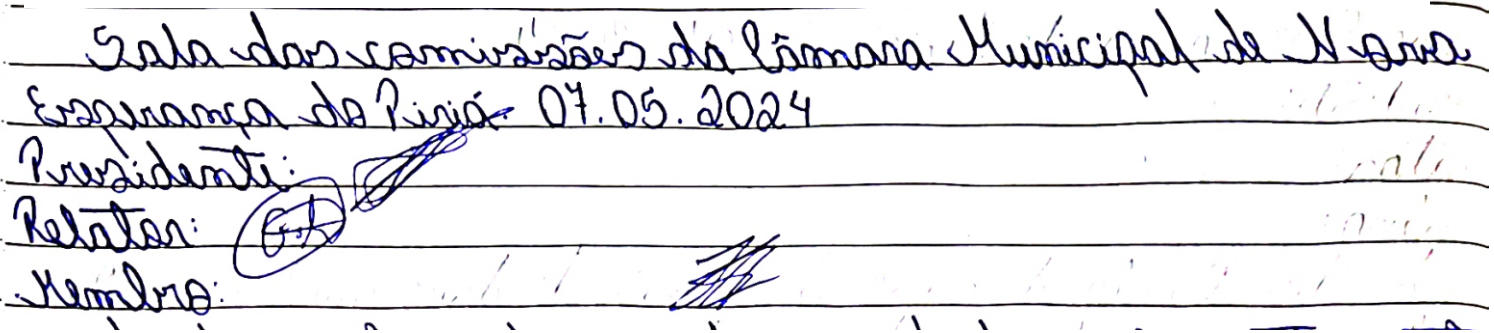 Sala das comissões da Câmara Municipal de Nova
Esperança do Piriá 07.05.2024
Presidente:
Relator:
Membro: